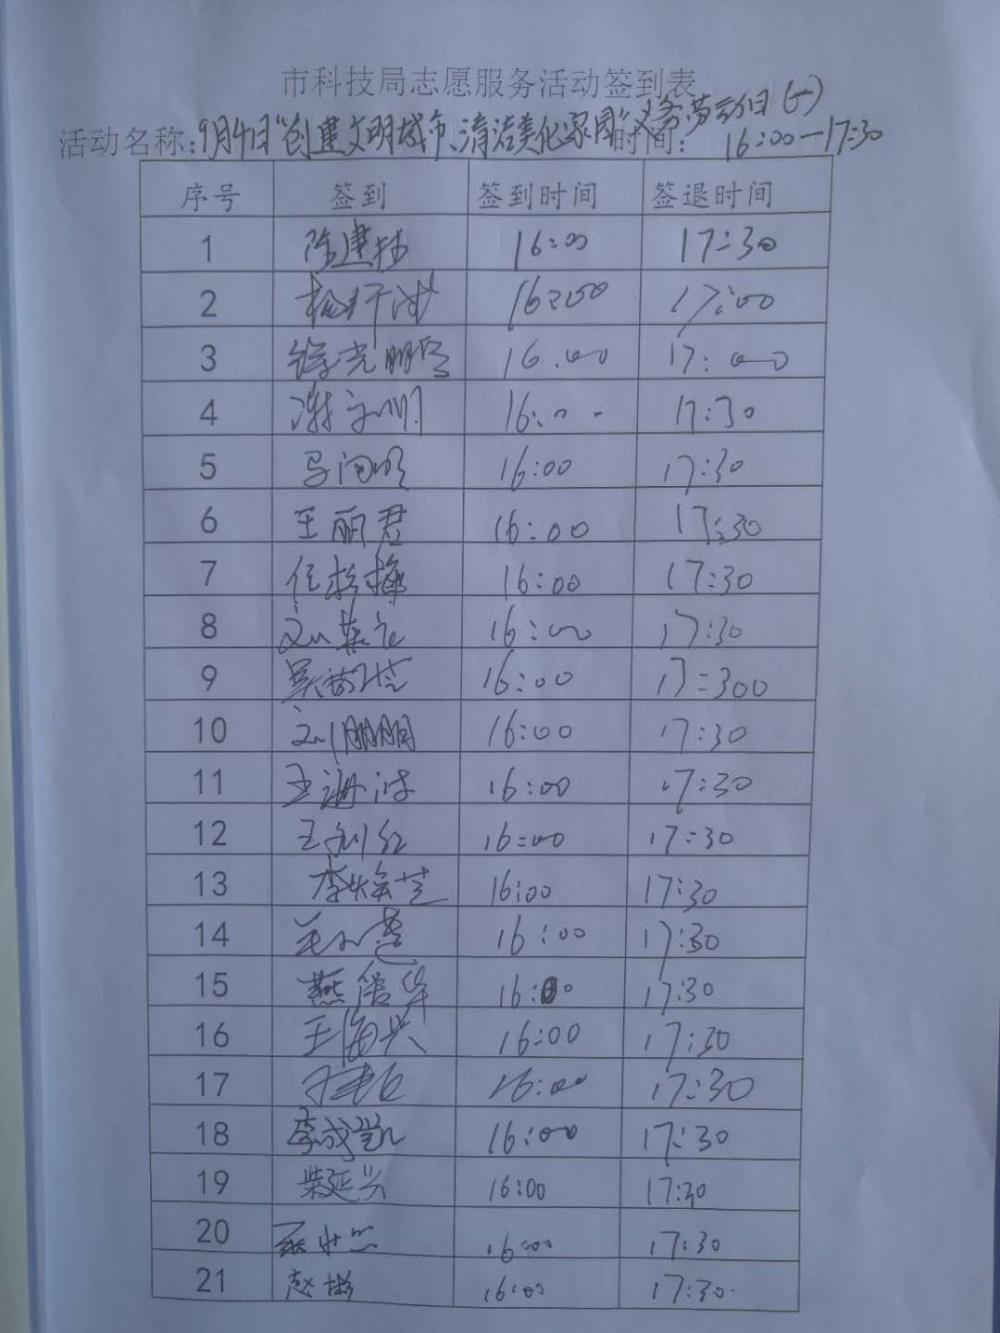 市科技局志愿服务活动签到表
活动名称:9月4日"创建文明城市、清洁美化家园"义务劳动日(一) 时间: 16:00—17:30
序号 签到 签到时间 签退时间
1 16:00 17:30
2 16:00 17:00
3 16:00 17:00
4 16:00 17:30
5 16:00 17:30
6 王丽君 16:00 17:30
7 任桂梅 16:00 17:30
8 16:00 17:30
9 16:00 17:300
10 刘朋朋 16:00 17:30
11 王海波 16:00 17:30
12 王利红 16:00 17:30
13 李焕芝 16:00 17:30
14 16:00 17:30
15 燕 华 16:00 17:30
16 王海兴 16:00 17:30
17 16:00 17:30
18 李成凯 16:00 17:30
19 柴延兴 16:00 17:30
20 16:00 17:30
21 赵彬 16:00 17:30